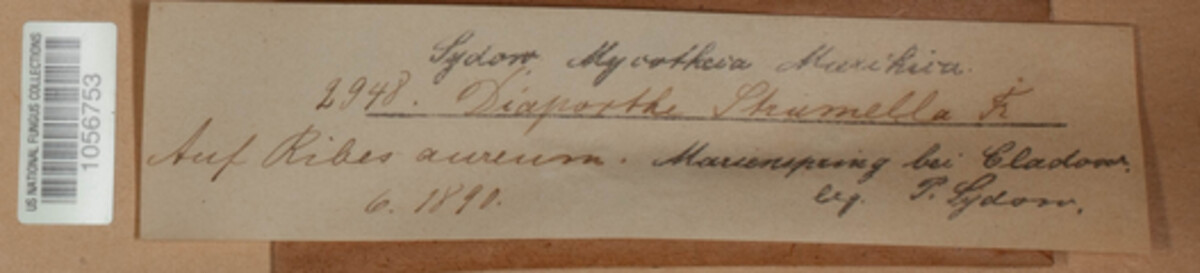 US NATIONAL FUNGUS COLLECTIONS
10567753
Sydow Mycotheca Marchica.
2948. Diaporthe Strumella Fr
Auf Ribes aureum. Marienspring bei Cladow.
6. 1890. leg. P. Sydow.